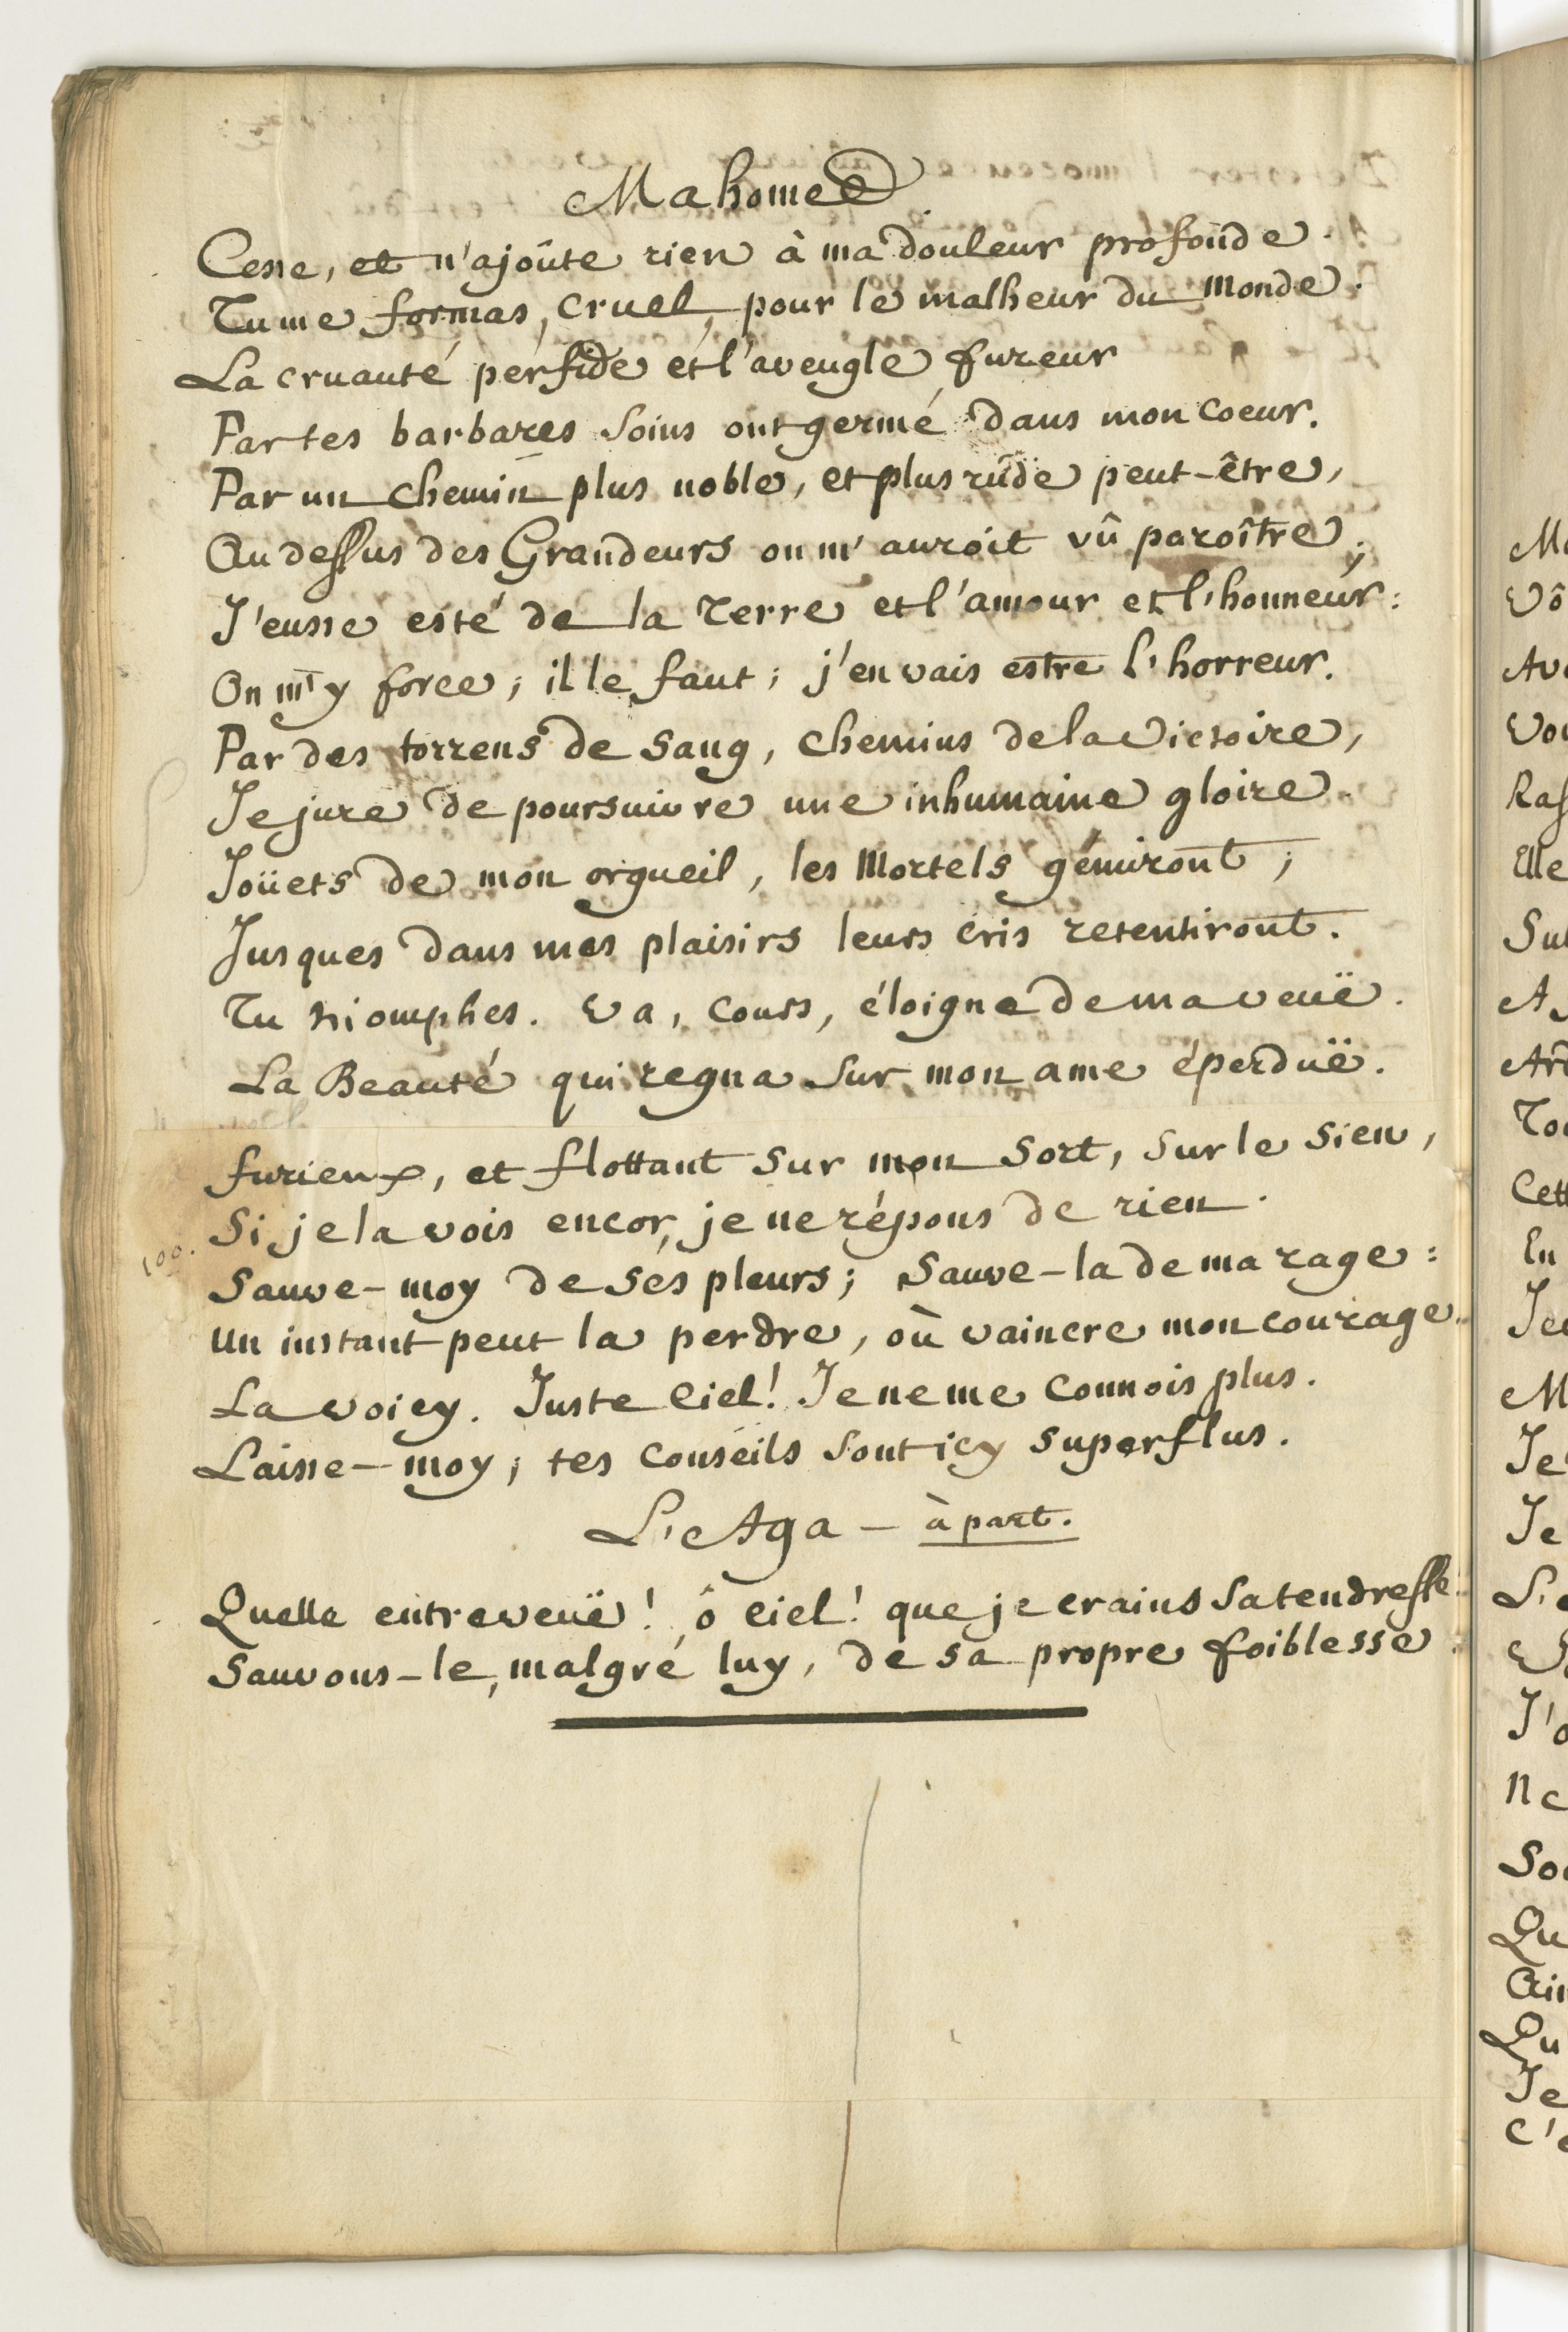 Mahomed
Cesse, et n'ajoûte rien à ma douleur profonde.
Tu me formas, cruel, pour le malheur du Monde.
La cruauté perfide et l'aveugle fureur
Par tes barbares soins ont germé dans mon coeur.
Par un chemin plus noble, et plus rude peut-être,
Au dessus des Grandeurs on m'auroit vû paroître;
J'eusse esté de la Terre et l'amour et l'honneur:
On m'y force; il le faut; j'en vais estre l'horreur.
Par des torrens de sang, chemins de la Victoire,
Je jure de poursuivre une inhumaine gloire.
Joüets de mon orgueil, les Mortels gémiront;
Jusques dans mes plaisirs leurs cris retentiront.
Tu triomphes. Va, cours, éloigne de ma veuë.
La Beauté qui regna sur mon ame éperduë.
furieux, et flottant sur mon sort, sur le sien,
Si je la vois encor, je ne répons de rien.
100.
Sauve-moy de ses pleurs; Sauve-la de ma rage:
Un instant peut la perdre, où vaincre mon courage.
La voicy. Juste Ciel! Je ne me connois plus.
Laisse-moy; tes conseils sont icy superflus.
L'Aga - à part.
Quelle entreveuë! ô ciel! que je crains sa tendresse
Sauvons-le, malgré luy, de sa propre foiblesse.
Vô
Elle
Je
Je
Je
Qu
Qu
Je